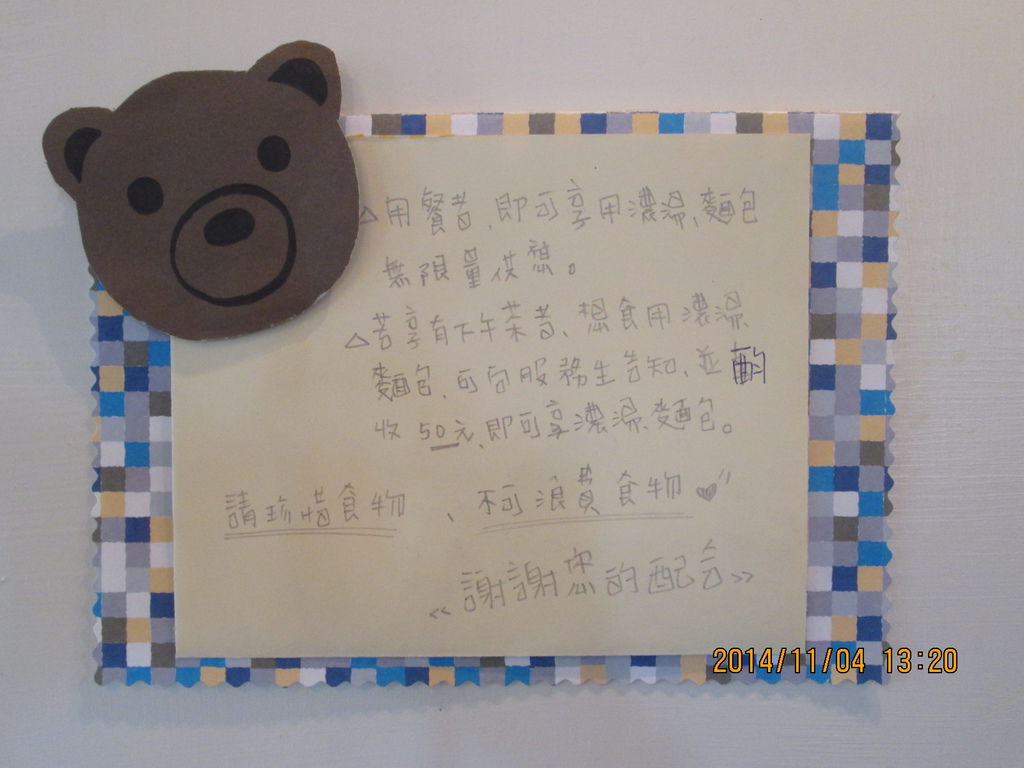 △用餐者,即可享用濃湯,麵包
無限量供應。
△若享有下午茶者,想食用濃湯
麵包,可向服務生告知,並酌
收50元,即可享濃湯,麵包。
請珍惜食物、不可浪費食物♥"
《謝謝您的配合》
2014/11/04 13:20